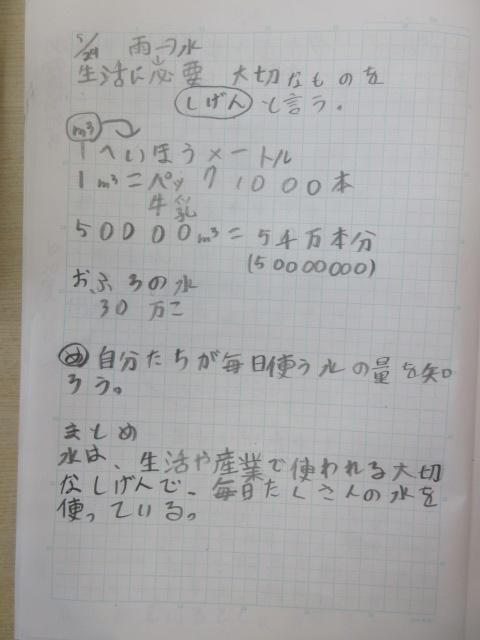 5/29 雨→水
生活に必要 大切なものを
しげん と言う。
m³
1へいほうメートル
1m³=パック1000本
牛乳
50000m³=5千万本分
(50000000)
おふろの水
30万こ
め 自分たちが毎日使う水の量を知
ろう。
まとめ
水は、生活や産業で使われる大切
なしげんで、毎日たくさんの水を
使っている。